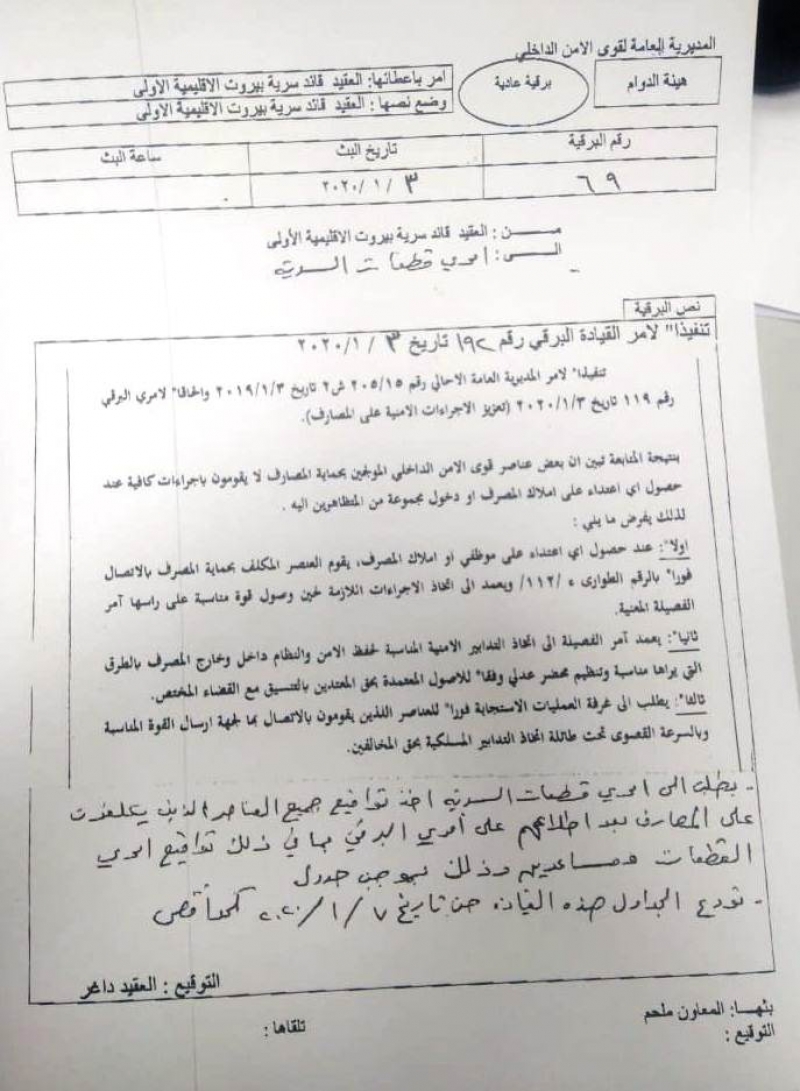 المديرية العامة لقوى الامن الداخلي
هيئة الدوام
برقية عادية
امر باعطائها: العقيد قائد سرية بيروت الاقليمية الأولى
وضع نصها : العقيد قائد سرية بيروت الاقليمية الأولى
رقم البرقية تاريخ البث ساعة البث
٦٩ ٣ / ١ /٢٠٢٠
مـــن : العقيد قائد سرية بيروت الاقليمية الأولى
الـــى: امري قطعات السرية
نص البرقية
تنفيذا" لامر القيادة البرقي رقم ١٩٢ تاريخ ٣ /٢٠٢٠/١
تنفيذا" لامر المديرية العامة الاحالي رقم ٢٠٥/١٥ ش٢ تاريخ ٢٠١٩/١/٣ والحاقا" لامري البرقي
رقم ١١٩ تاريخ ٢٠٢٠/١/٣ (تعزيز الاجراءات الامنية على المصارف).
بنتيجة المتابعة تبين ان بعض عناصر قوى الامن الداخلي المولجين بحماية المصارف لا يقومون باجراءات كافية عند
حصول اي اعتداء على املاك المصرف او دخول مجموعة من المتظاهرين اليه .
لذلك يفرض ما يلي :
اولا": عند حصول اي اعتداء على موظفي او املاك المصرف، يقوم العنصر المكلف بحماية المصرف بالاتصال
فورا" بالرقم الطوارئ ء /١١٢/ ويعمد الى اتخاذ الاجراءات اللازمة حين وصول قوة مناسبة على راسها آمر
الفصيلة المعنية.
ثانيا": يعمد آمر الفصيلة الى اتخاذ التدابير الامنية المناسبة لحفظ الامن والنظام داخل وخارج المصرف بالطرق
التي يراها مناسبة وتنظيم محضر عدلي وفقا" للاصول المعتمدة بحق المعتدين بالتنسيق مع القضاء المختص.
ثالثا": يطلب الى غرفة العمليات الاستجابة فورا" للعناصر اللذين يقومون بالاتصال بها لجهة ارسال القوة المناسبة
وبالسرعة القصوى تحت طائلة اتخاذ التدابير المسلكية بحق المخالفين.
- يطلب الى امري قطعات السرية اخذ تواقيع جميع العناصر الذين يكلفون
على المصارف بعد اطلاعهم على أمري البرقي بما في ذلك تواقيع امري
القطعات ومساعديهم وذلك بموجب جدول
- تودع الجداول هذه القيادة من تاريخ ٢٠٢٠/١/٧ كحد أقصى
التوقيع : العقيد داغر
بثهـا: المعاون ملحم
تلقاها :
التوقيع :